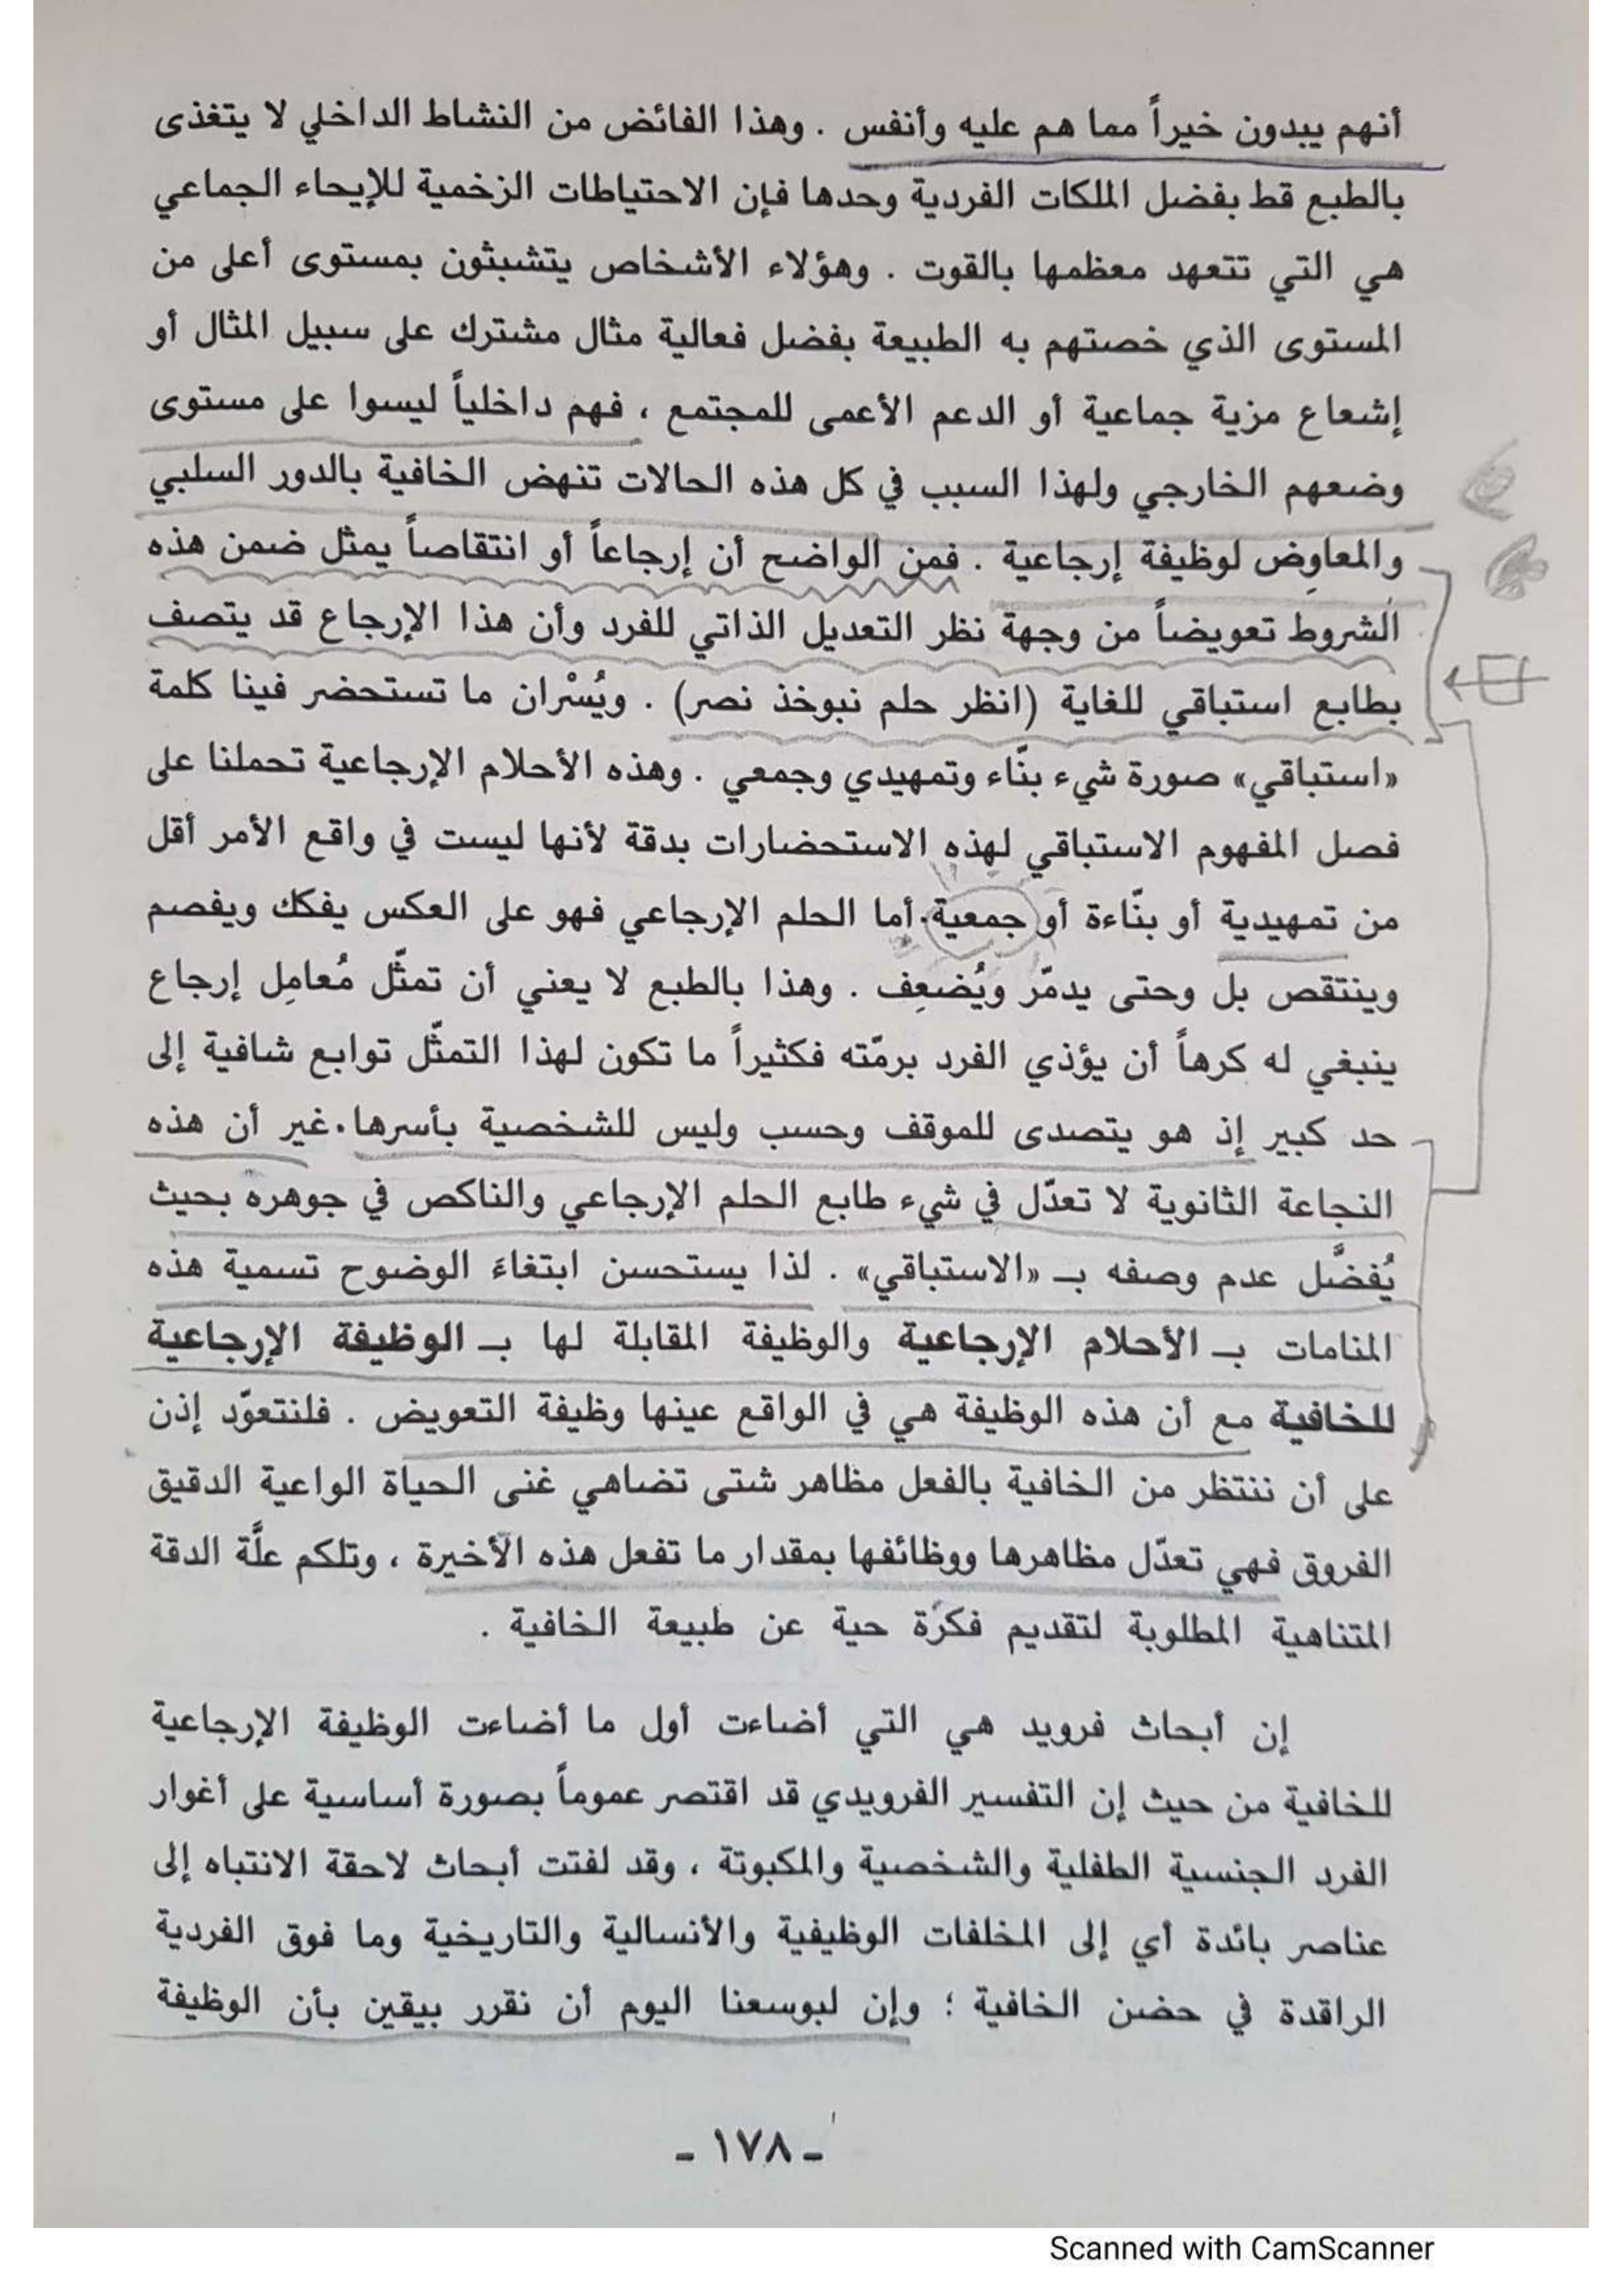 أنهم يبدون خيراً مما هم عليه وأنفس . وهذا الفائض من النشاط الداخلي لا يتغذى
بالطبع قط بفضل الملكات الفردية وحدها فإن الاحتياطات الزخمية للإيحاء الجماعي
هي التي تتعهد معظمها بالقوت . وهؤلاء الأشخاص يتشبثون بمستوى أعلى من
المستوى الذي خصتهم به الطبيعة بفضل فعالية مثال مشترك على سبيل المثال أو
إشعاع مزية جماعية أو الدعم الأعمى للمجتمع ، فهم داخلياً ليسوا على مستوى
وضعهم الخارجي ولهذا السبب في كل هذه الحالات تنهض الخافية بالدور السلبي
والمعاوِض لوظيفة إرجاعية . فمن الواضح أن إرجاعاً أو انتقاصاً يمثل ضمن هذه
الشروط تعويضاً من وجهة نظر التعديل الذاتي للفرد وأن هذا الإرجاع قد يتصف
بطابع استباقي للغاية (انظر حلم نبوخذ نصر) . ويُسْران ما تستحضر فينا كلمة
«استباقي» صورة شيء بنّاء وتمهيدي وجمعي . وهذه الأحلام الإرجاعية تحملنا على
فصل المفهوم الاستباقي لهذه الاستحضارات بدقة لأنها ليست في واقع الأمر أقل
من تمهيدية أو بنّاءة أو جمعية. أما الحلم الإرجاعي فهو على العكس يفكك ويفصم
وينتقص بل وحتى يدمّر ويُضعِف . وهذا بالطبع لا يعني أن تمثّل مُعامِل إرجاع
ينبغي له كرهاً أن يؤذي الفرد برمّته فكثيراً ما تكون لهذا التمثّل توابع شافية إلى
حد كبير إذ هو يتصدى للموقف وحسب وليس للشخصية بأسرها. غير أن هذه
النجاعة الثانوية لا تعدّل في شيء طابع الحلم الإرجاعي والناكص في جوهره بحيث
يُفضَّل عدم وصفه بـ «الاستباقي» . لذا يستحسن ابتغاءَ الوضوح تسمية هذه
المنامات بـ الأحلام الإرجاعية والوظيفة المقابلة لها بـ الوظيفة الإرجاعية
للخافية مع أن هذه الوظيفة هي في الواقع عينها وظيفة التعويض . فلنتعوّد إذن
على أن ننتظر من الخافية بالفعل مظاهر شتى تضاهي غنى الحياة الواعية الدقيق
الفروق فهي تعدّل مظاهرها ووظائفها بمقدار ما تفعل هذه الأخيرة ، وتلكم علَّة الدقة
المتناهية المطلوبة لتقديم فكرة حية عن طبيعة الخافية .
إن أبحاث فرويد هي التي أضاءت أول ما أضاءت الوظيفة الإرجاعية
للخافية من حيث إن التفسير الفرويدي قد اقتصر عموماً بصورة أساسية على أغوار
الفرد الجنسية الطفلية والشخصية والمكبوتة ، وقد لفتت أبحاث لاحقة الانتباه إلى
عناصر بائدة أي إلى المخلفات الوظيفية والأنسالية والتاريخية وما فوق الفردية
الراقدة في حضن الخافية ؛ وإن لبوسعنا اليوم أن نقرر بيقين بأن الوظيفة
- ١٧٨ -
Scanned with CamScanner